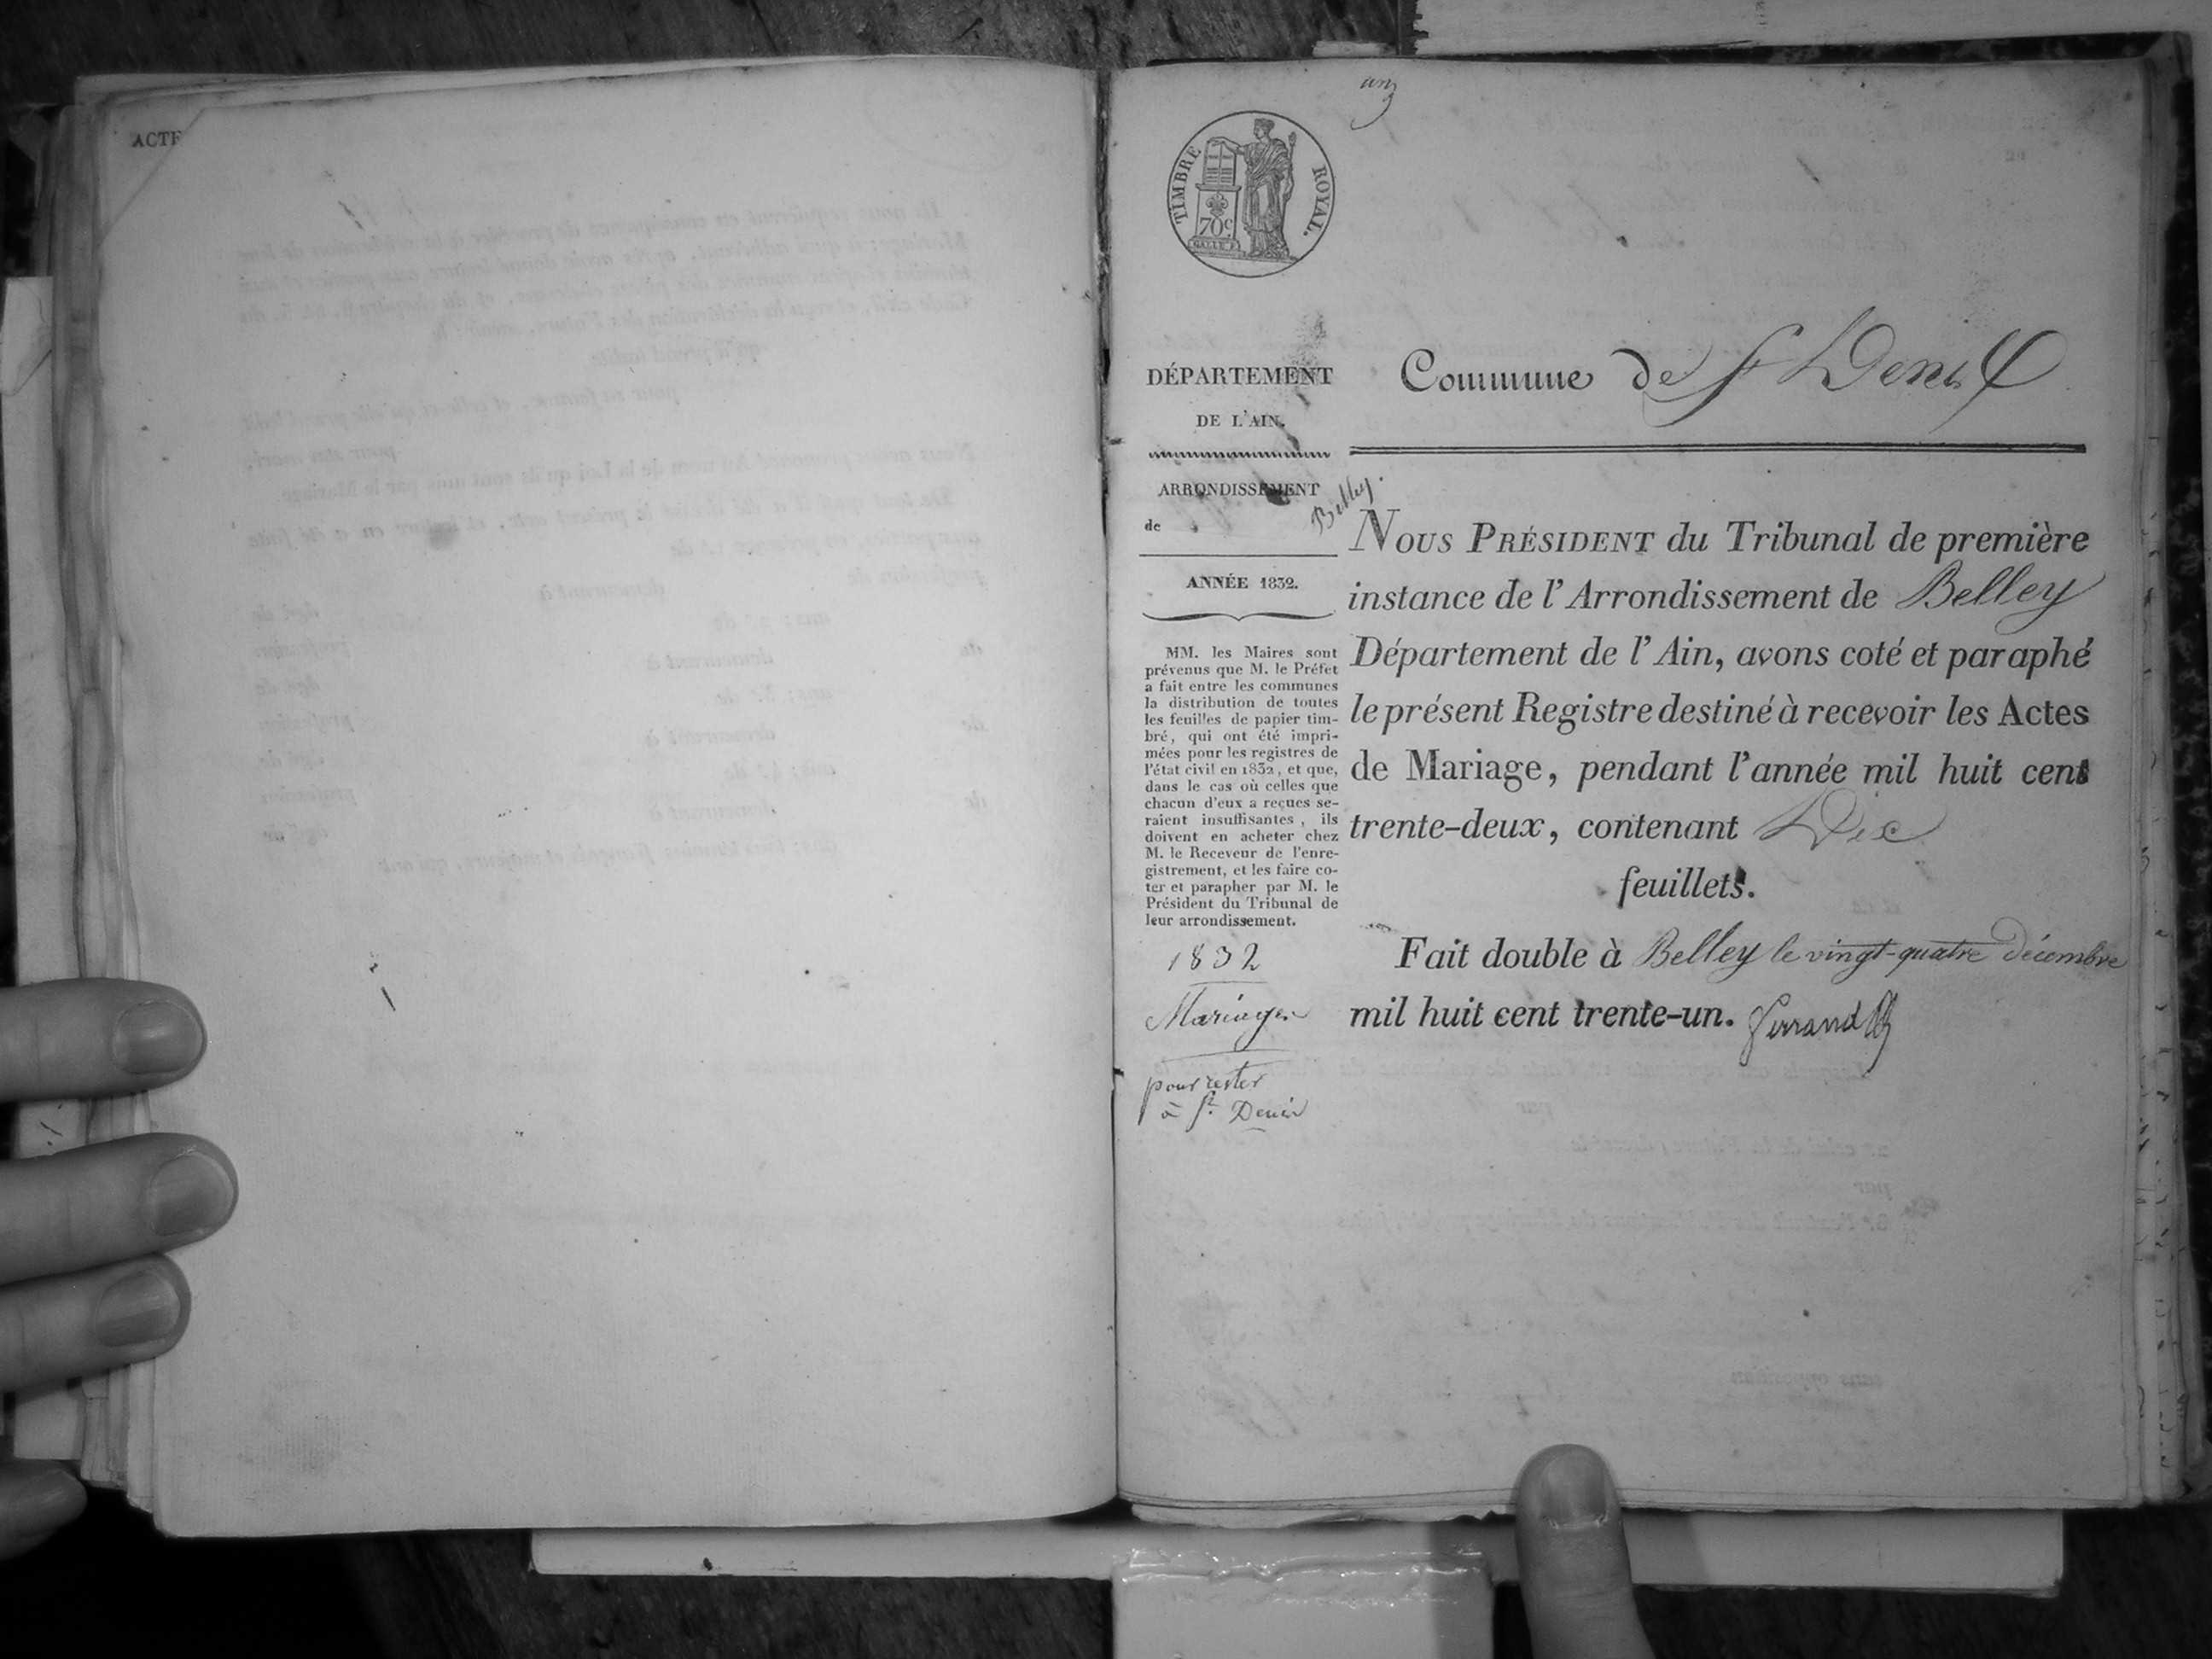 ACTE
TIMBRE ROYAL.
70c
GALLE F.
DÉPARTEMENT
DE L'AIN.
ARRONDISSEMENT
de Belley.
ANNÉE 1832.
MM. les Maires sont
prévenus que M. le Préfet
a fait entre les communes
la distribution de toutes
les feuilles de papier tim-
bré, qui ont été impri-
mées pour les registres de
l'état civil en 1832, et que,
dans le cas où celles que
chacun d'eux a reçues se-
raient insuffisantes, ils
doivent en acheter chez
M. le Receveur de l'enre-
gistrement, et les faire co-
ter et parapher par M. le
Président du Tribunal de
leur arrondissement.
1832
Mariages
pour rester
à St. Denis
Commune de St Denis
NOUS PRÉSIDENT du Tribunal de première
instance de l'Arrondissement de Belley
Département de l'Ain, avons coté et paraphé
le présent Registre destiné à recevoir les Actes
de Mariage, pendant l'année mil huit cent
trente-deux, contenant Dix
feuillets.
Fait double à Belley le vingt-quatre décembre
mil huit cent trente-un.